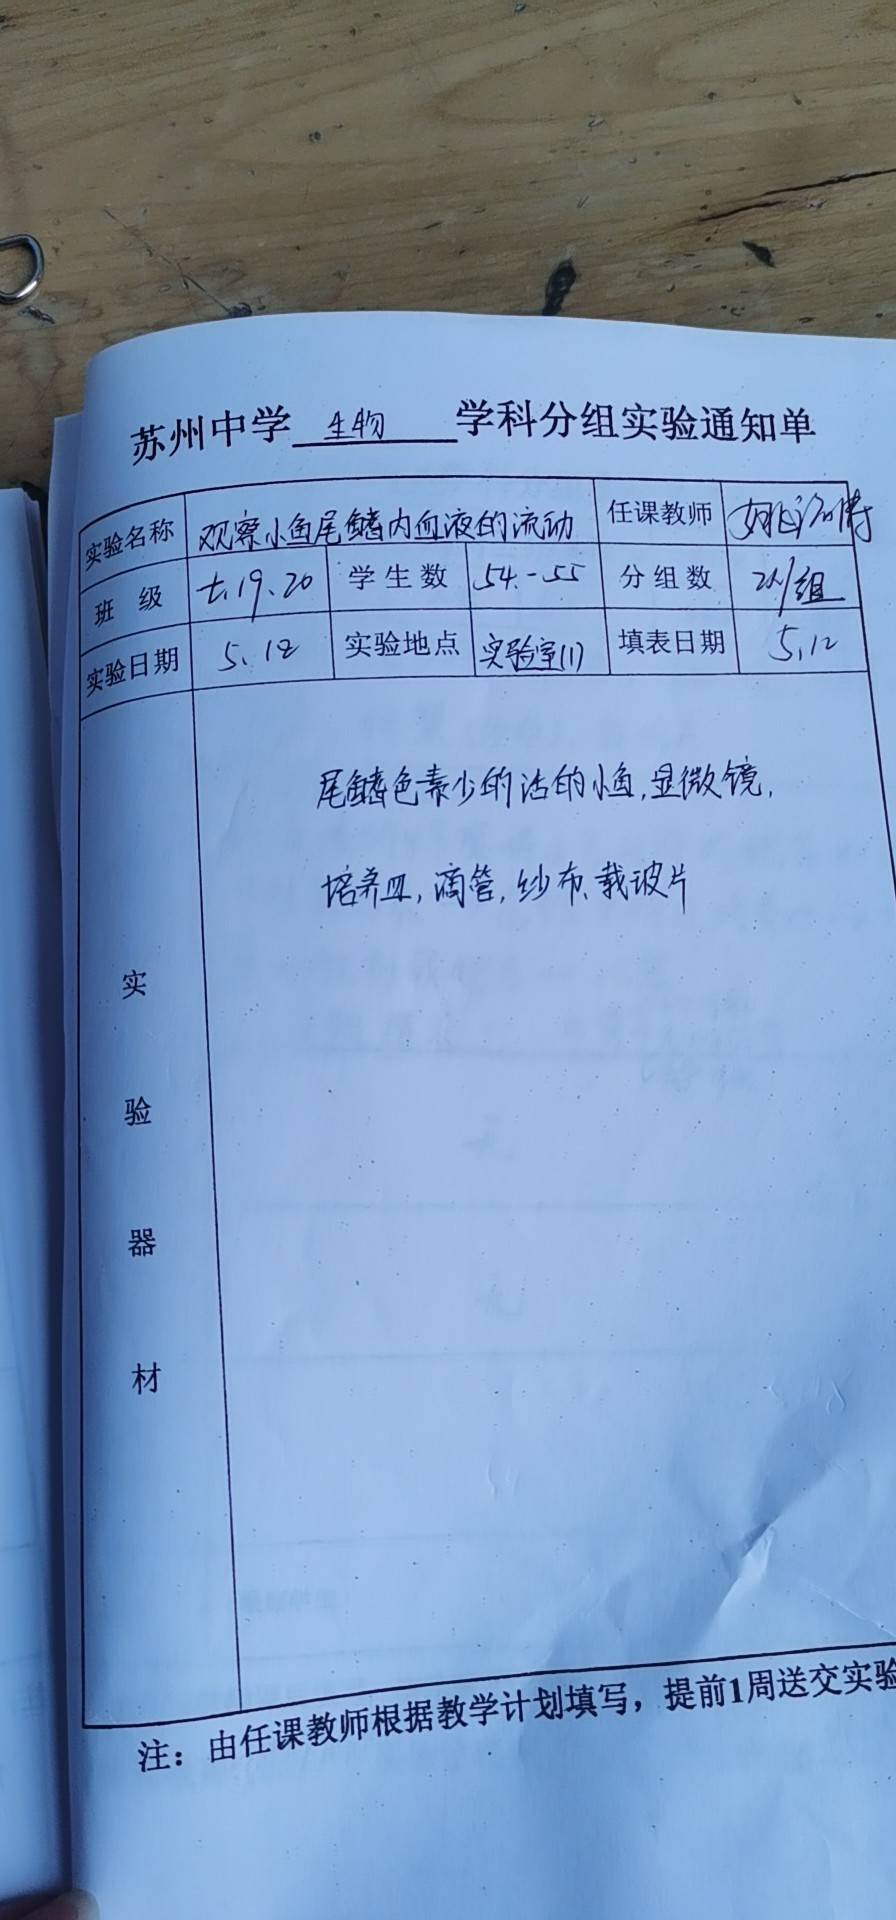 苏州中学 生物 学科分组实验通知单
实验名称 观察小鱼尾鳍内血液的流动 任课教师
班 级 七.19、20 学生数 54.-55 分组数 2人/组
实验日期 5、18 实验地点 实验室(1) 填表日期 5,12
尾鳍色素少的活的小鱼,显微镜,
培养皿,滴管,纱布、载玻片
实
验
器
材
注：由任课教师根据教学计划填写，提前1周送交实验